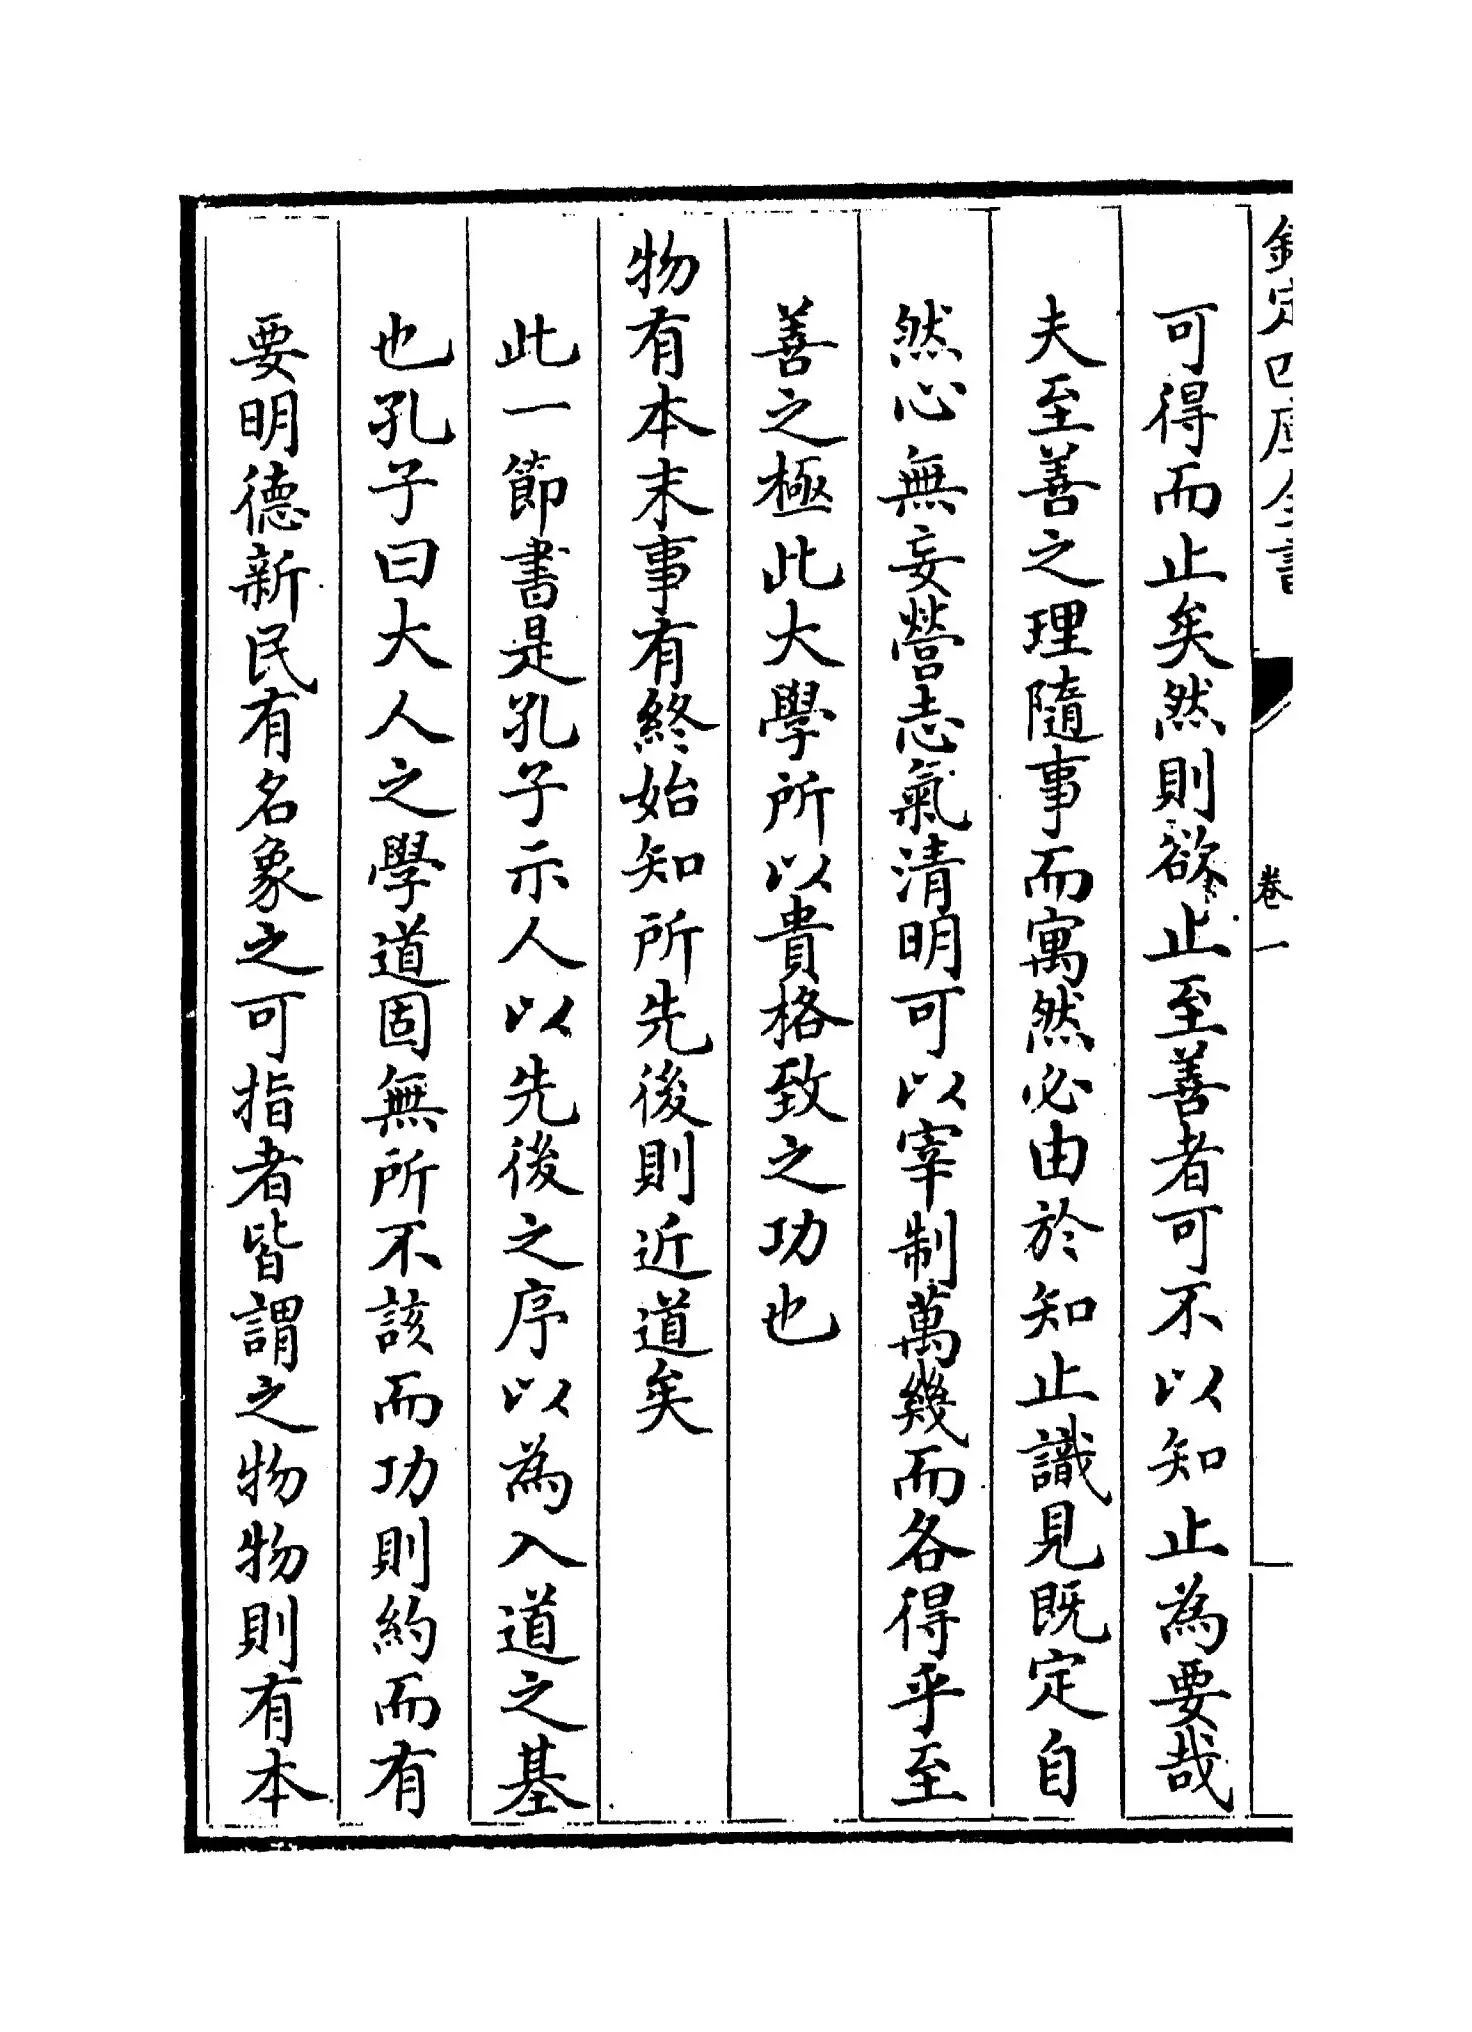 欽定四庫全書
卷一
可得而止矣然則欲止至善者可不以知止為要哉
夫至善之理隨事而寓然必由於知止識見既定自
然心無妄營志氣清明可以宰制萬幾而各得乎至
善之極此大學所以貴格致之功也
物有本末事有終始知所先後則近道矣
此一節書是孔子示人以先後之序以為入道之基
也孔子曰大人之學道固無所不該而功則約而有
要明德新民有名象之可指者皆謂之物物則有本